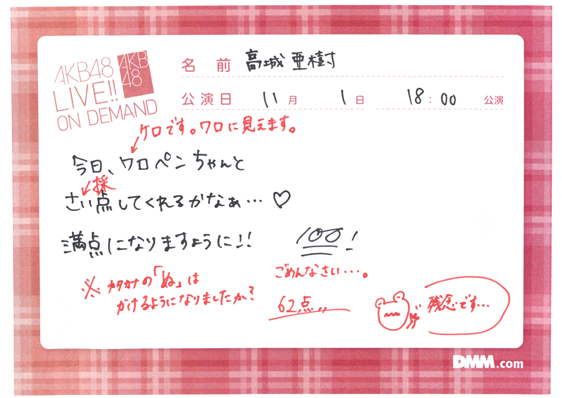 AKB48
LIVE!!
ON DEMAND
AKB
48
名 前 高城 亜樹
公演日 11月 1日 18:00 公演
ケロです。ワロに見えます。
今日、ワロペンちゃんと
採
さい点してくれるかなぁ… ♡
満点になりますように!! 100!
ごめんなさい…。
※ カタカナの「ぬ」は
かけるようになりましたか?
62点〃
残念です…
DMM.com